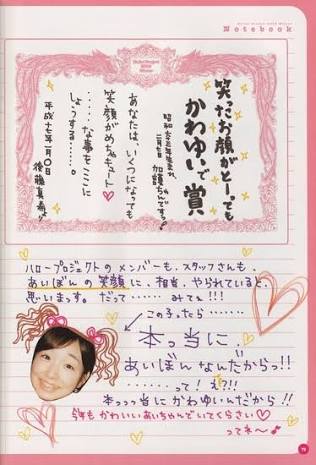 Notebook
Hello! Project 2005 Winter
笑ったお顔がとーっても
かわゆいで賞
昭和六三年生まれ
二月七日 加護ちゃんです。
あなたは、いくつになっても
笑顔がめちゃキュート♡
……な事をここに
しょうする……。
平成十七年一月〇日
後藤真希より
ハロープロジェクトのメンバーも、スタッフさんも、
あいぼんの笑顔に、相当、やられていると、
思います。だって……みてぇ!!!
この子ったら……
本っ当に、
あいぼんなんだからっ!!
………って! え?!!
本っっっ当にかわゆいんだから!!
今年もかわいいあいちゃんでいてくらさい♡
ってネ〜♪